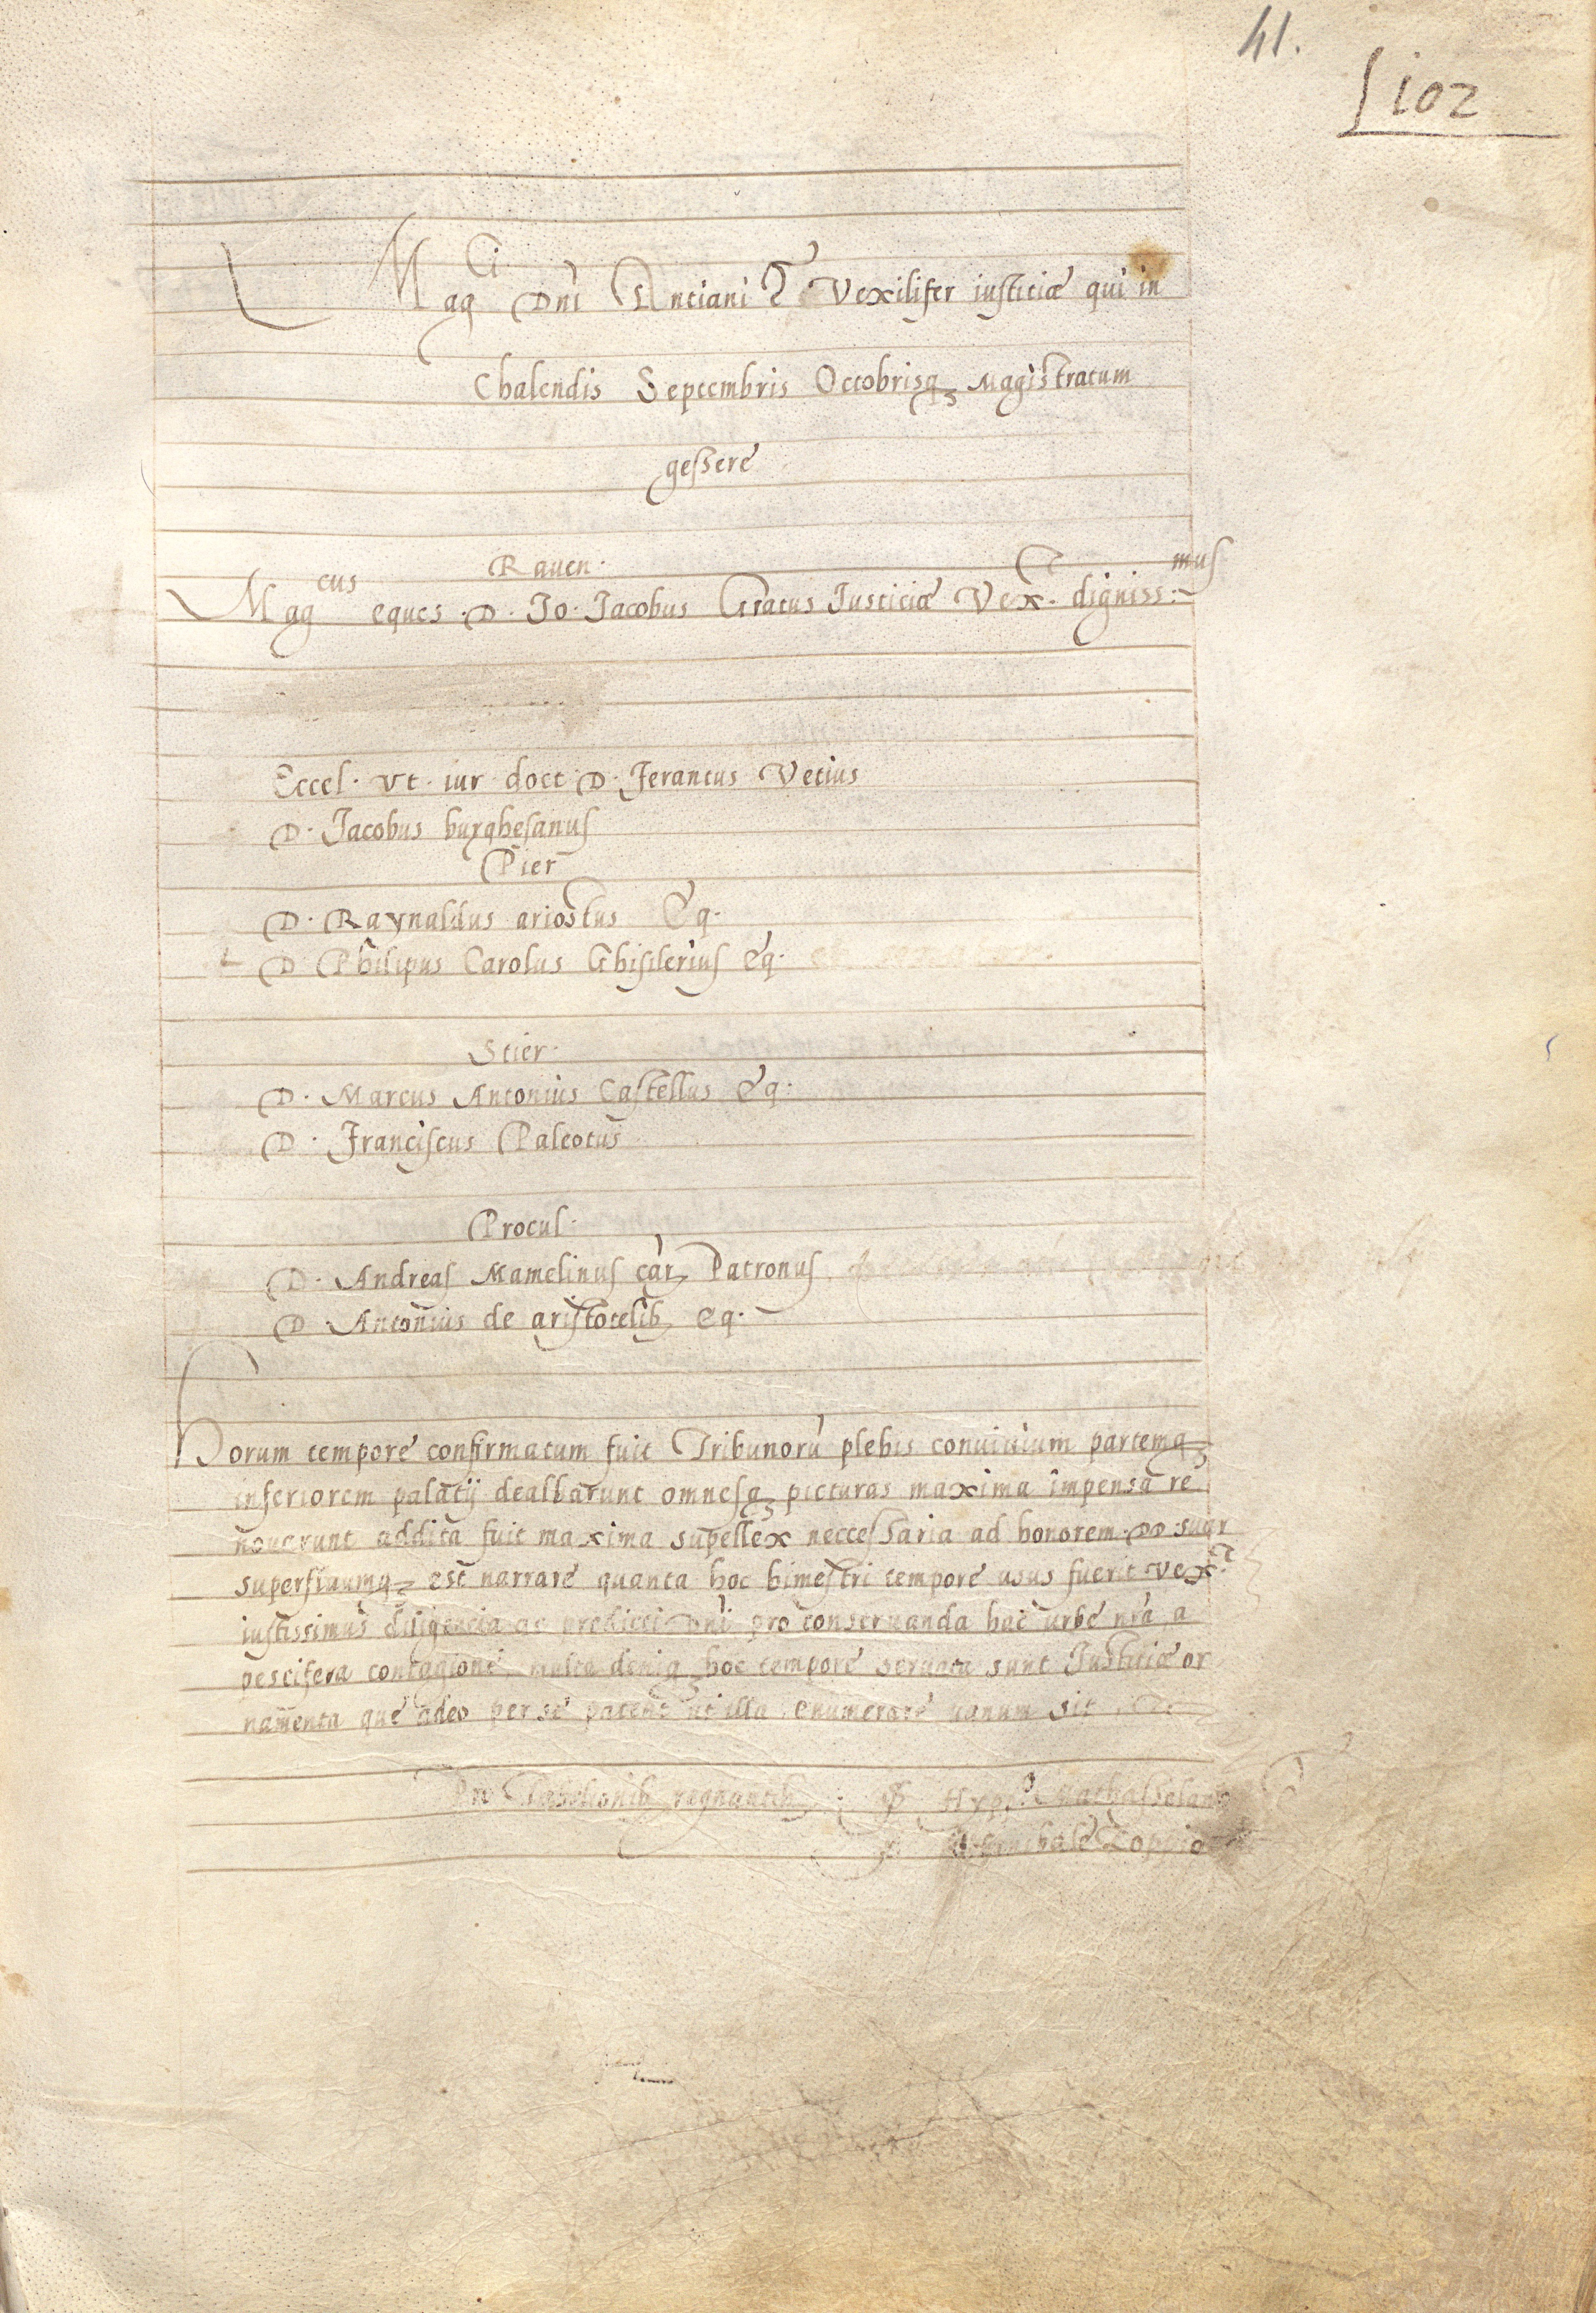 41.
102
Mag^ci Dni Antiani & Vexilifer iusticiæ qui in
Chalendis Septembris Octobrisq₃ Magistratum
gessere
Raven.
Mag^cus eques . D . Jo . Jacobus Gratus Justiciæ Vex . digniss:^mus
Eccel . ut . iur . doct . D . Ferantus Vetius
D . Jacobus burghesanus
Pier
D . Raynaldus ariostus Eq .
D Philipus Carolus Ghisilerius Eq .
Stier .
D . Marcus Antonius Castellus Eq .
D . Franciscus Paleotus
Procul .
D . Andreas Mamelinus car Patronus
D Antonius de aristotelib Eq .
Horum tempore confirmatum fuit Tribunorū plebis conuiuium partemq₃
inferiorem palatij dealbarunt omnesq₃ picturas maxima impensa re
nouarunt addita fuit maxima supellex neccessaria ad honorem DD suor
superfluumq₃ est narrare quanta hoc bimestri tempore usus fuerit Vex.
iustissimus diligencia ac predicti Dni pro conseruanda hac urbe nrā a
pestifera contagione, multa deniq₃ hoc tempore seruata sunt Justitiæ or
namenta que adeo per se patent ut illa enumerare uanum sit
Tabelionib regnantib